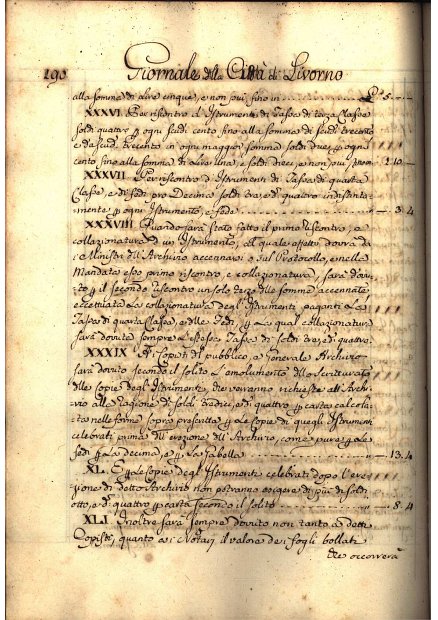 190 Giornale della Città di Livorno
alla somma di Lire cinque, e non più, sino in £ 5 —
XXXVI. Per riscontro d'Istrumenti di Tassa di terza Classe
soldi quattro p ogni scudi cento sino alla somma di scudi trecento
e da scudi trecento in ogni maggior somma soldi due, p ogni
cento sino alla somma di Lire una, e soldi dieci, e non più 1. 10 —
XXXVII Per riscontro d'Istrumenti di Tassa di quarta
Classe, e di fedi pro Decima soldi tre, e d. quattro indistinta-
mente p ogni Istrumento, e fede — 3. 4
XXXVIII Quando sarà stato fatto il primo riscontro, e
collazionatura d'un Istrumento, al quale effetto dovrà da
i Ministri dell'Archivio accennarsi o sul Protocollo, e nella
Mandata esso primo riscontro e collazionatura, sarà dov-
to p il secondo riscontro un solo terzo delle somme accennate
eccettuata la collazionatura degl'Istrumenti paganti La
Tassa di quarta Classe, e delle Fedi, p La qual collazionatura
sarà dovuta sempre L'istessa Tassa di soldi tre, e d. quattro.
XXXIX Ai Copisti del pubblico, e Generale Archivio
sarà dovuto secondo il solito L'emolumento della Scritturato
delle copie degl'Istrumenti, che verranno richieste all'Archi-
vio alla ragione di soldi tredici, e d. quattro p carta calcola-
ta nelle forme sopra prescritte p le Copie di quegli Istrumenti
celebrati prima dell'erezione dell'Archivio, come pure p Le
fedi p La decima, e p La Gabella — 13. 4
XL. E p le Copie degl'Istrumenti celebrati dopo l'ere-
zione di detto Archivio non potranno esigere di più di soldi
otto, e d. quattro p carta secondo il solito — 8. 4
XLI. Inoltre sarà sempre dovuto non tanto a detti
Copisti, quanto a i Notari il valore de i fogli bollati
che occorrerà